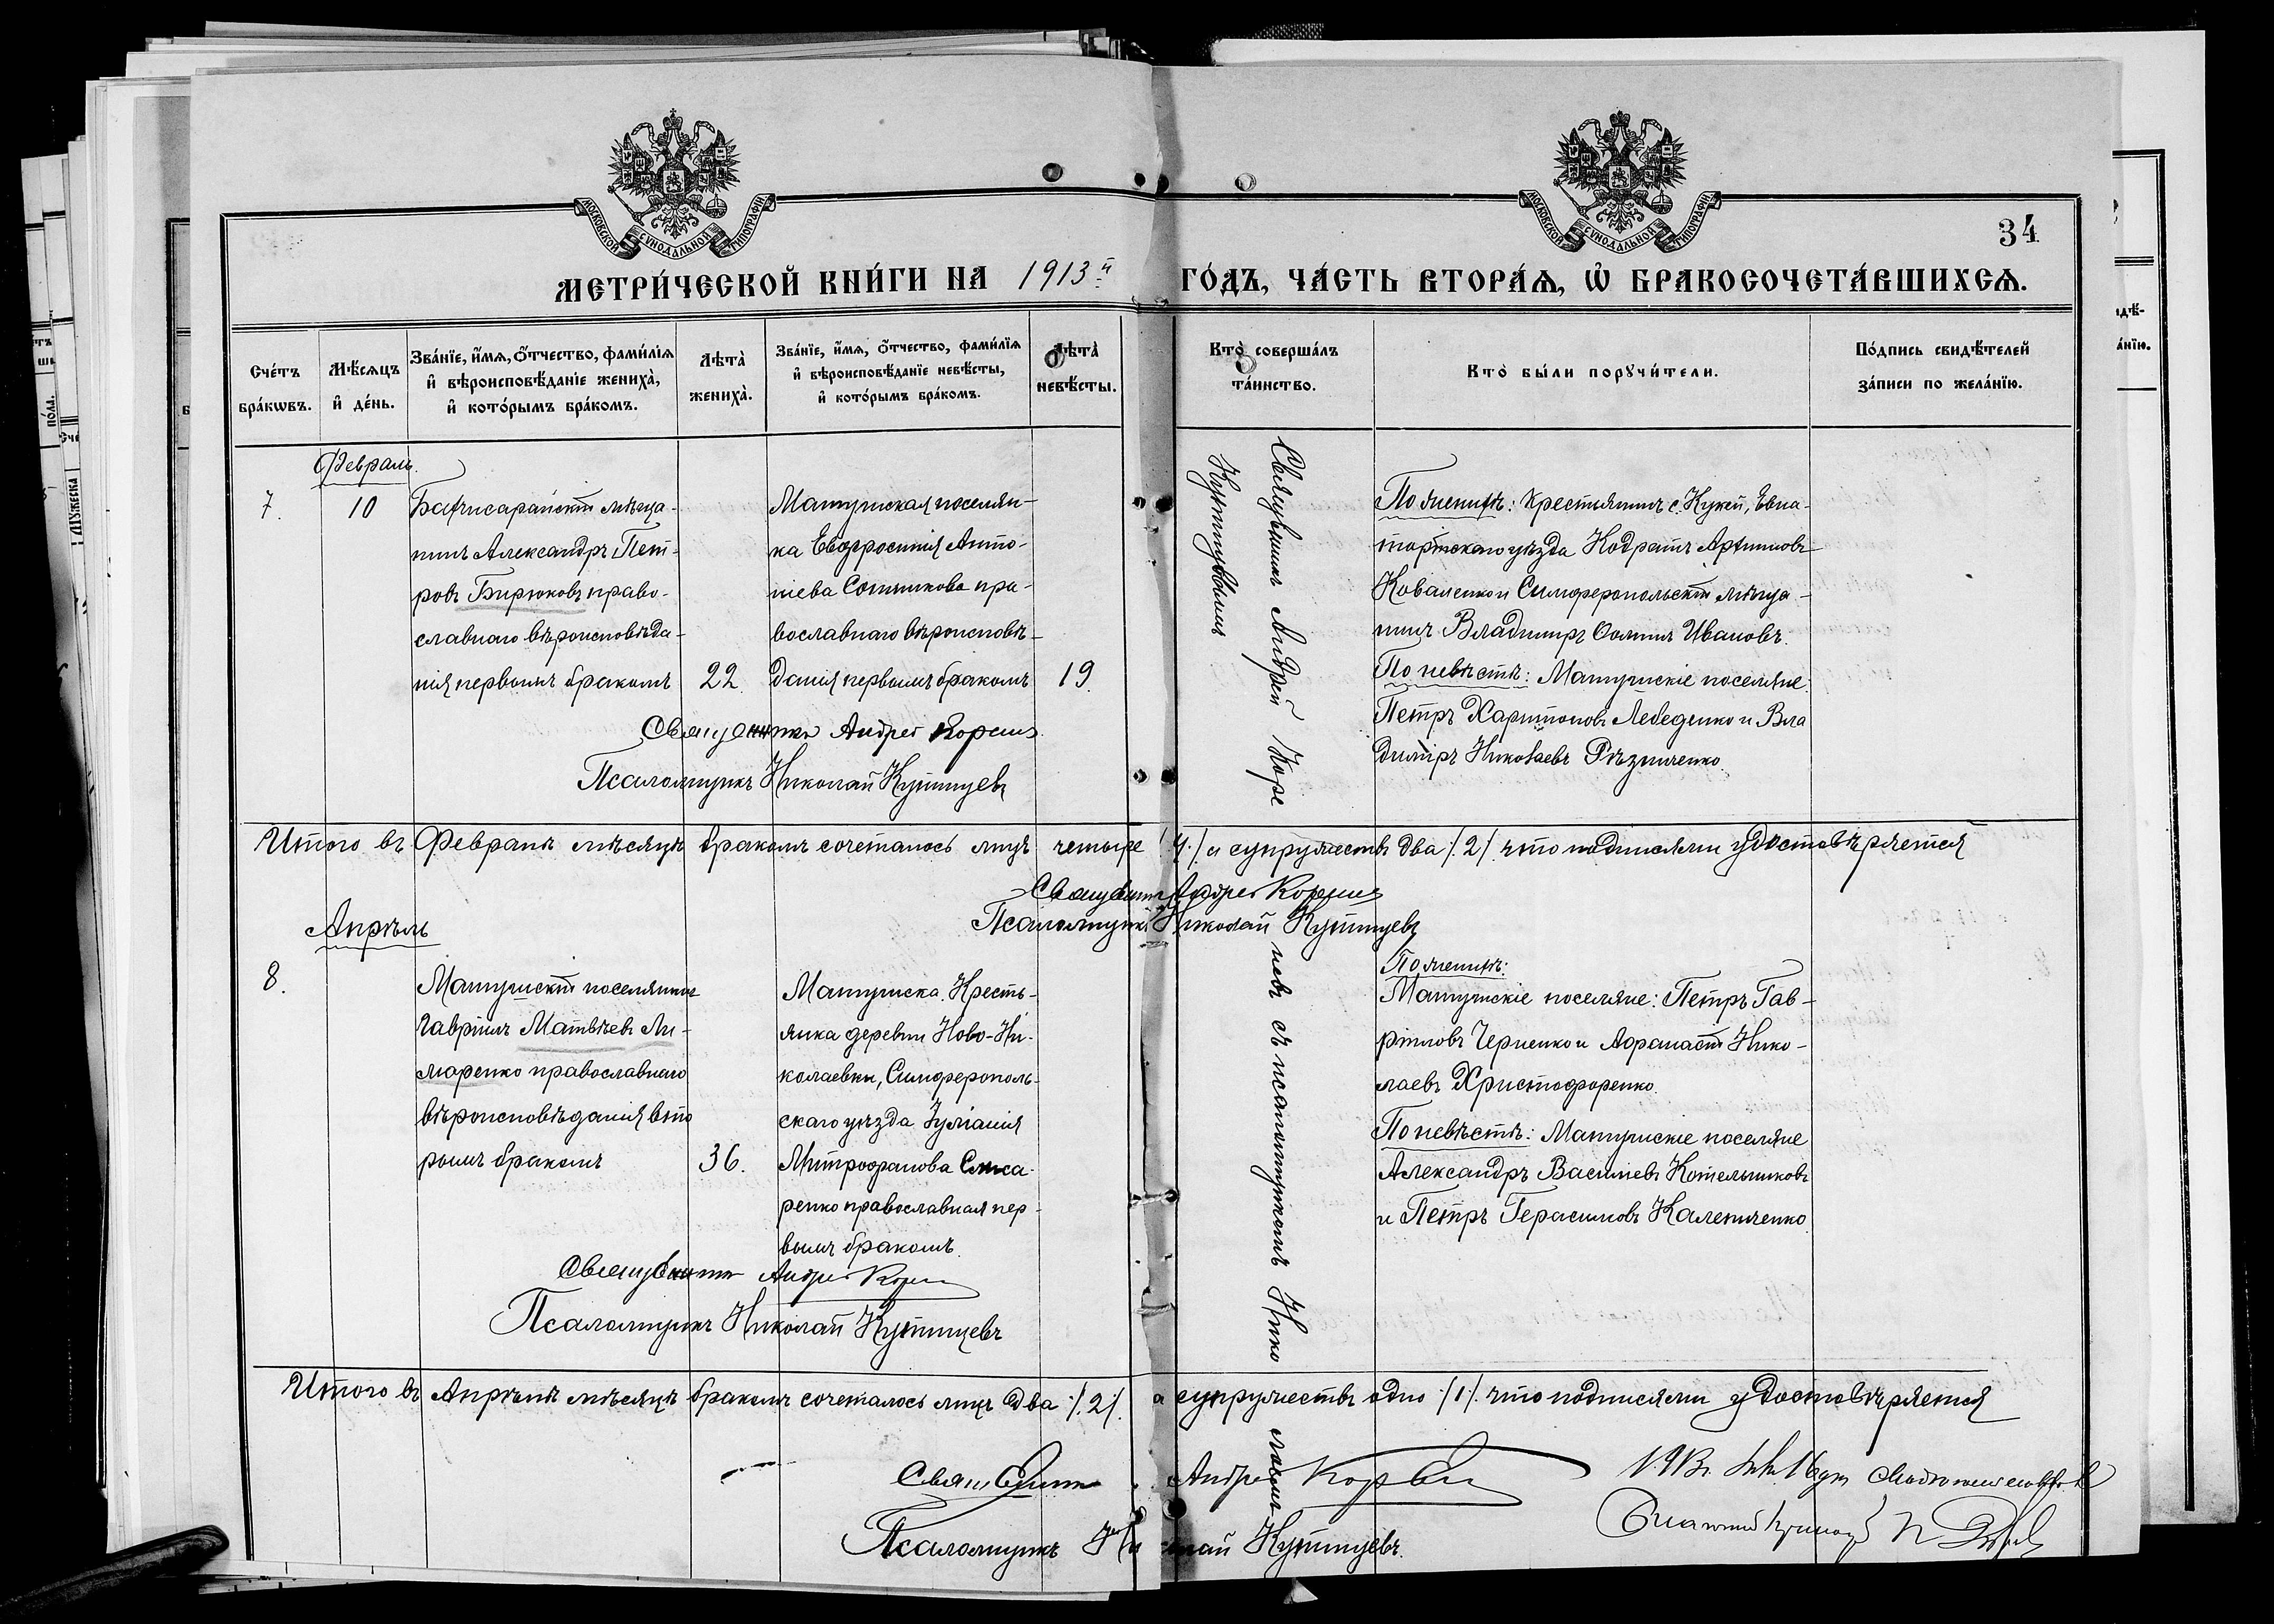 34
МОСКОВСКОЙ СѴНОДАЛЬНОЙ ТИПОГРАФІИ
МОСКОВСКОЙ СѴНОДАЛЬНОЙ ТИПОГРАФІИ
МЕТРИ́ЧЕСКОЙ КНИ́ГИ НА 1913й ГО́ДЪ, ЧА́СТЬ ВТОРА́Ѧ, Ѽ БРАКОСОЧЕТА́ВШИХСѦ.
Сче́тъ
бра́кѡвъ.
Мѣ́сѧцъ
и҆ де́нь.
Зва́нїе, и҆́мѧ, ѻ҆́тчество, фами́лїѧ
и҆ вѣроисповѣ́данїе жениха̀,
и҆ кото́рымъ бра́комъ.
Лѣта̀
жениха̀.
Зва́нїе, и҆́мѧ, ѻ҆́тчество, фами́лїѧ
и҆ вѣроисповѣ́данїе невѣ́сты,
и҆ кото́рымъ бра́комъ.
Лѣта̀
невѣ́сты.
Кто̀ соверша́лъ
та́инство.
Кто̀ бы́ли порꙋчи́тели.
По́дпись свидѣ́телей
за́писи по жела́нїю.
Февраль.
7.
10
Бахчисарайскій мѣща-
нинъ Александръ Пет-
ровъ Бирюковъ право-
славнаго вѣроисповѣда-
нія первымъ бракомъ
22.
Мангушская поселян-
ка Евфросинія Анто-
ніева Сотникова пра-
вославнаго вѣроисповѣ-
данія первымъ бракомъ
19.
Священникъ Андрей Корен
Псаломщикъ Николай Купиццевъ
Священникъ Андрей Коре
невъ съ псаломщикомъ Нико
лаемъ
По женихѣ: Крестьянинъ с. Кукей, Евпа-
торійскаго уѣзда Кодратъ Архиповъ
Коваленко и Симферопольскій мѣща-
нинъ Владиміръ Ѳоминъ Ивановъ.
По невѣстѣ: Мангушскіе поселяне:
Петръ Харитоновъ Лебеденко и Вла
диміръ Николаевъ Рѣзниченко.
Итого въ Февралѣ мѣсяцѣ бракомъ сочеталось лицъ четыре /4/ а супружествъ два /2/ что подписями удостовѣряется
Священникъ Андрей
Псаломщикъ Николай
Апрѣль
8.
Мангушскій поселянинъ
Гавріилъ Матвѣевъ Ли-
маренко православнаго
вѣроисповѣданія вто
рымъ бракомъ
36.
Мангушска. Кресть-
янка деревни Ново-Ни-
колаевки, Симферополь-
скаго уѣзда Іуліанія
Митрофанова Слюса-
ренко православная пер-
вымъ бракомъ.
Священникъ Андрей
Псаломщикъ Николай
По женихѣ:
Мангушскіе поселяне: Петръ Гав-
ріиловъ Черненко и Афанасій Нико-
лаевъ Христофоренко.
По невѣстѣ: Мангушскіе поселяне
Александръ Васильевъ Котельниковъ
и Петръ Герасимовъ Калениченко.
Итого въ Апрѣлѣ мѣсяцѣ бракомъ сочеталось лицъ два /2/. а супружествъ одно /1/. что подписями удостовѣряется
Священникъ Андрей
Псаломщикъ Николай